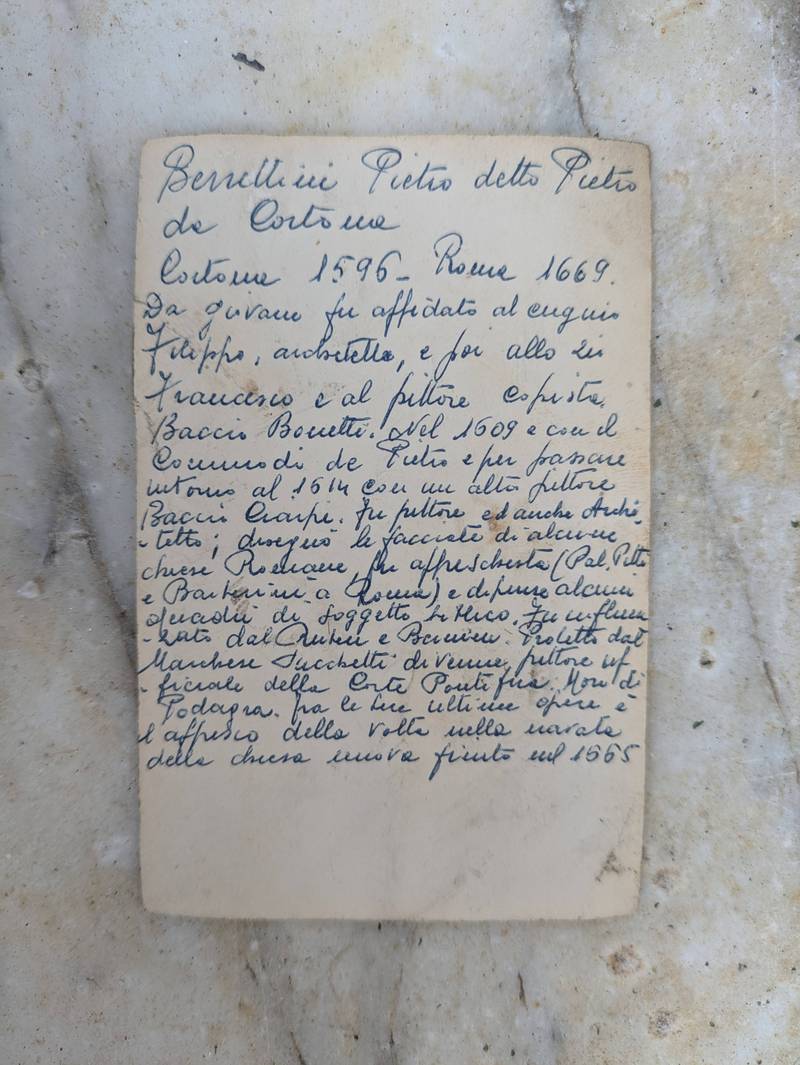 Berrettini Pietro detto Pietro
da Cortona
Cortona 1596 - Roma 1669.
Da giovane fu affidato al cugino
Filippo, architetto, e poi allo zio
Francesco e al pittore copista
Baccio Bonetti. Nel 1609 e con il
Commodi de Pietro e per passare
intorno al 1614 con un altro pittore
Baccio Ciarpi. Fu pittore ed anche Archi-
-tetto; disegnò le facciate di alcune
chiese Romane, fu affreschista (Pal. Pitti
e Barberini a Roma) e dipinse alcuni
quadri di soggetto biblico. Fu influen
-zato dal Ruben e Bernini. Protetto dal
Marchese Sacchetti divenne pittore uf-
-ficiale della Corte Pontificia. Morì di
Podagra. fra le sue ultime opere è
l'affresco della volta nella navata
della chiesa nuova finito nel 1665